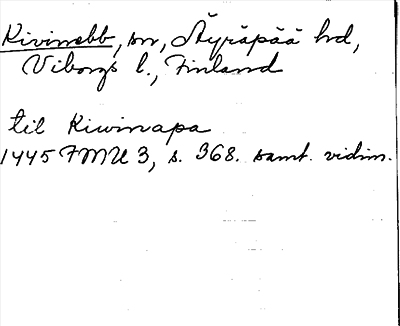 Kivinebb, sn, Äyräpää hd,
Viborgs l., Finland
til Kiwinapa
1445 FMU 3, s. 368. samt. vidim.